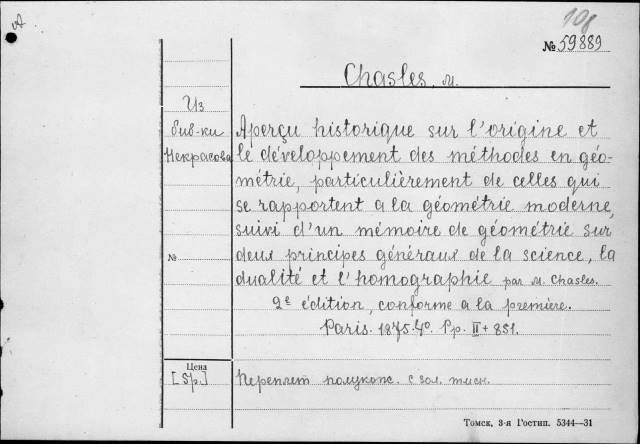 108
№ 59889
Chasles, M.
Из
биб-ки
Некрасова
Aperçu historique sur l'origine et
le développement des méthodes en géo-
métrie, particulièrement de celles qui
se rapportent a la géométrie moderne,
suivi d'un mémoire de géométrie sur
deux principes généraux de la science, la
dualité et l'homographie par M. Chasles.
2e édition, conforme a la première.
Paris. 1875. 4o. Pp. II + 851.
№
Цена
[5р.]
Переплет полукож. с зол. тисн.
Томск, 3-я Гостип. 5344—31